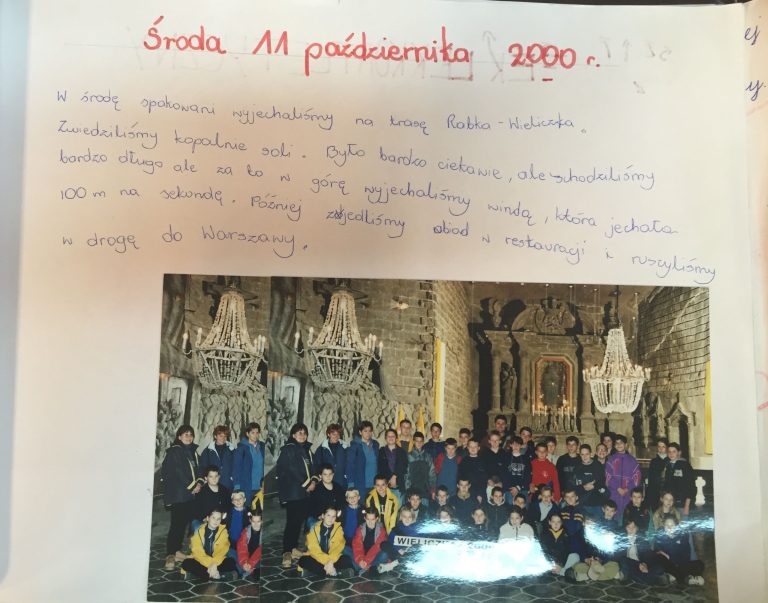 Środa 11 października 2000 r.
W środę spakowani wyjechaliśmy na trasę Rabka - Wieliczka.
Zwiedziliśmy kopalnie soli. Było bardzo ciekawie, ale schodziliśmy
bardzo długo ale za to w górę wyjechaliśmy windą, która jechała
100 m na sekundę. Później zjedliśmy obiad w restauracji i ruszyliśmy
w drogę do Warszawy.
WIELICZKA 2000
ej
y.